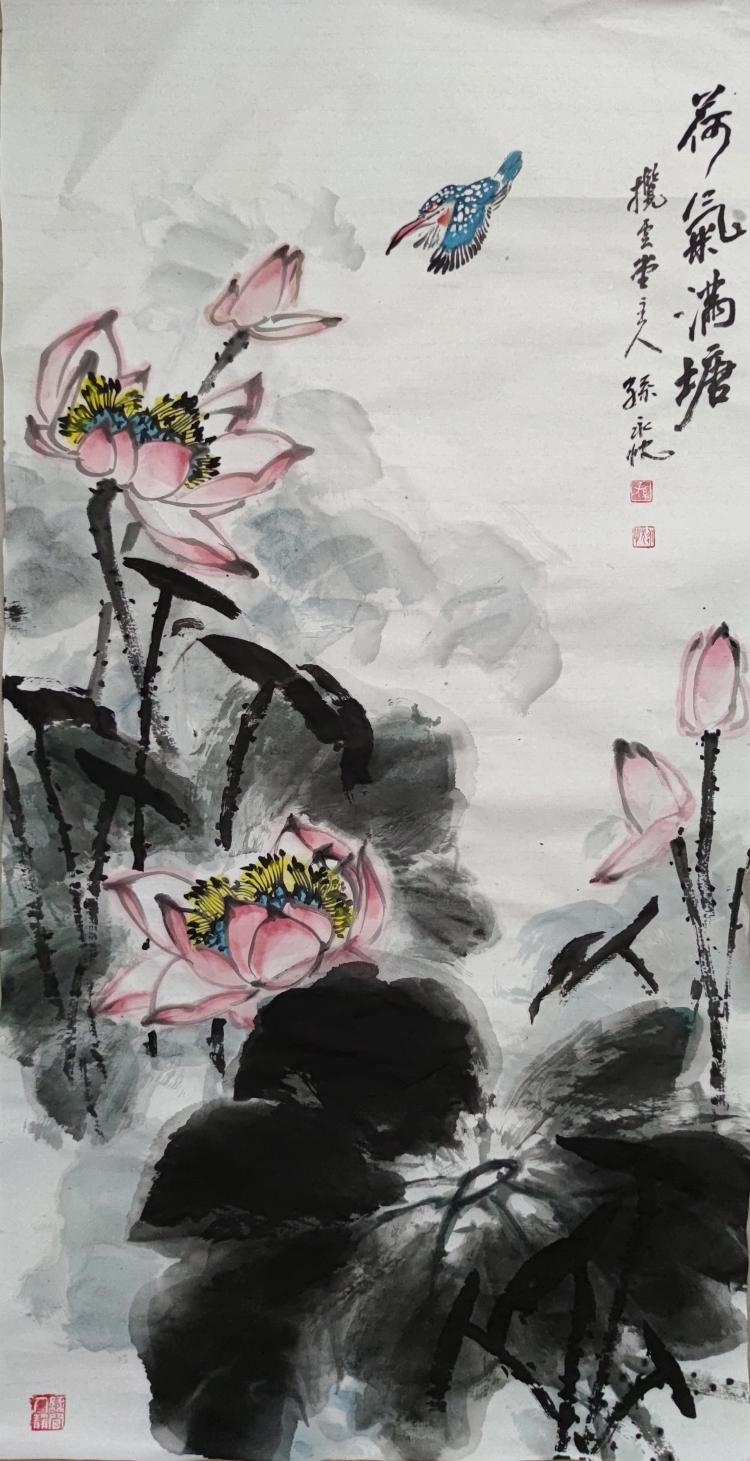 荷氣滿塘
攬雲堂主人 孫永悦